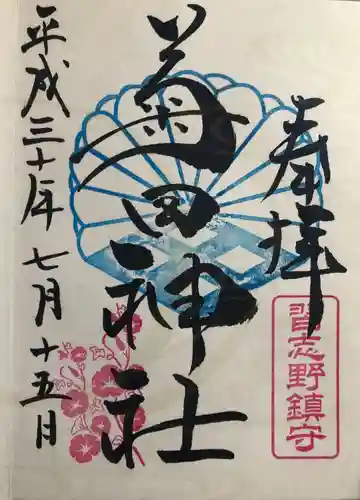 奉拝
習志野鎮守
菊田神社
平成三十年七月十五日